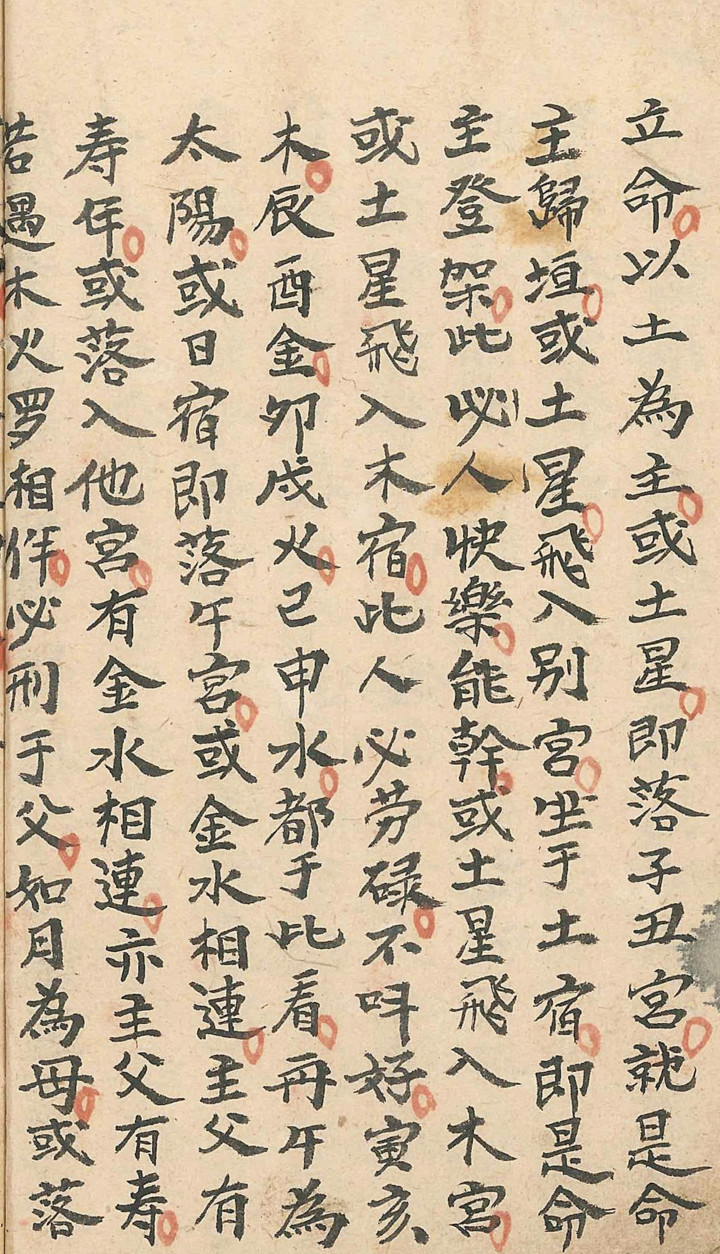 立命以土為主或土星即落子丑宮就是命
主歸垣或土星飛入别宮坐于土宿即是命
主登架此必人快樂能幹或土星飛入木宮
或土星飛入木宿此人必劳碌不呌好寅亥
木辰酉金卯戌火巳申水都于此看再午為
太陽或日宿即落午宮或金水相連主父有
寿年或落入他宮有金水相連亦主父有寿
若遇木火罗相伴必刑于父如月為母或落